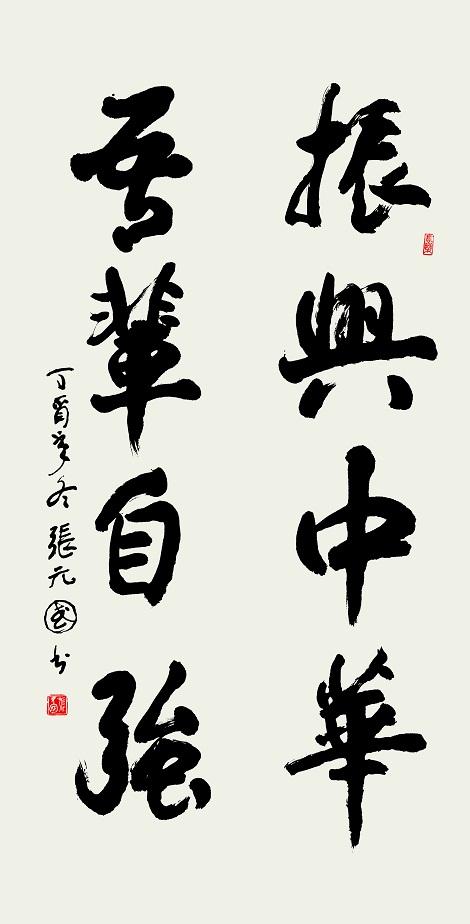 振興中華
吾輩自強
丁酉年冬張元國书